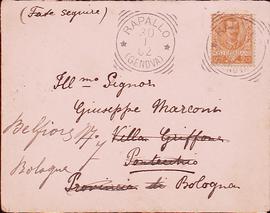 (Fate seguire)
RAPALLO
(GENOVA)
Ill mo Signor
Giuseppe Marconi
Villa Griffone
Pontecchio
Provincia di Bologna
Bologna